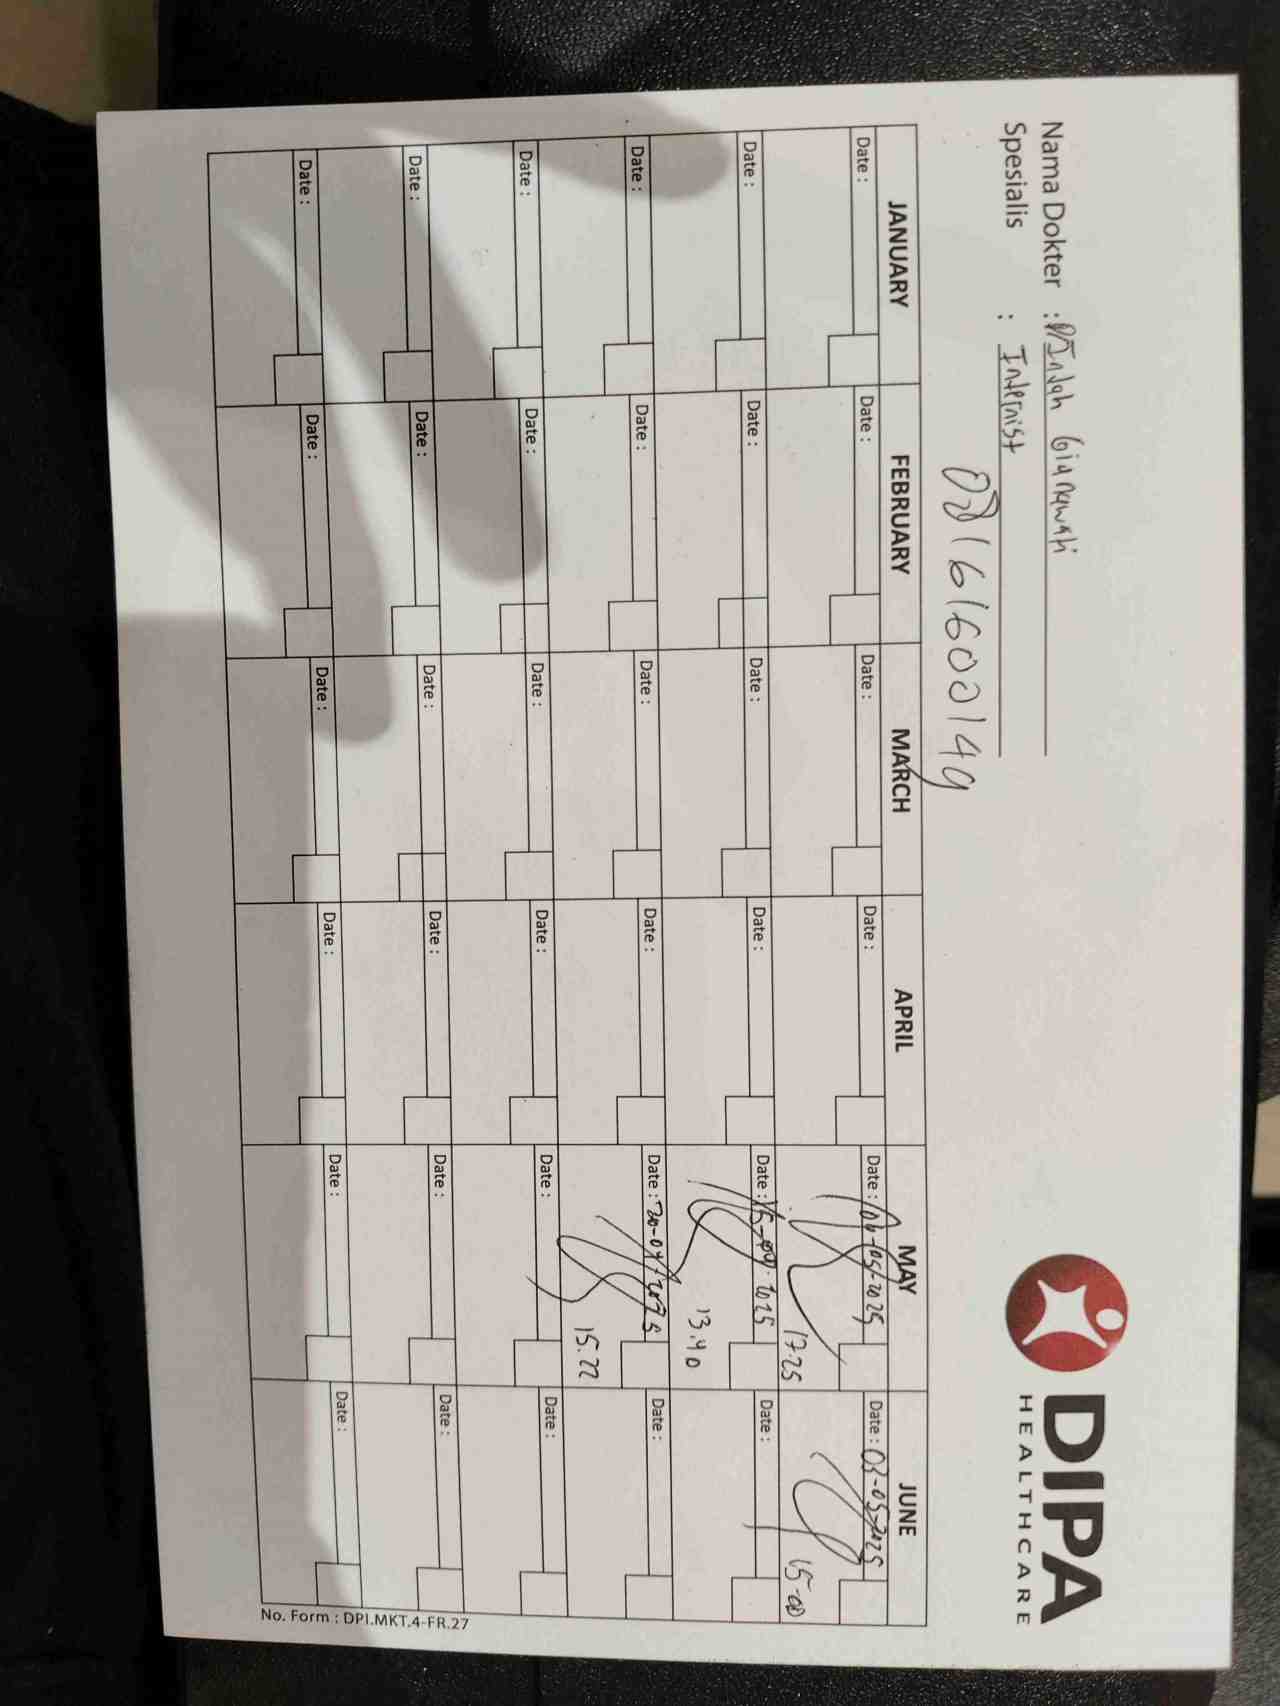 DIPA
HEALTHCARE
Nama Dokter :
Spesialis : Internist
JANUARY FEBRUARY MARCH APRIL MAY JUNE
Date : Date : Date : Date : Date : 06-05-2025 Date : 03-05-2025
17.25 15-00
Date : Date : Date : Date : Date : Date :
13.40
Date : Date : Date : Date : Date : Date :
15.22
Date : Date : Date : Date : Date : Date :
Date : Date : Date : Date : Date : Date :
Date : Date : Date : Date : Date : Date :
No. Form : DPI.MKT.4-FR.27